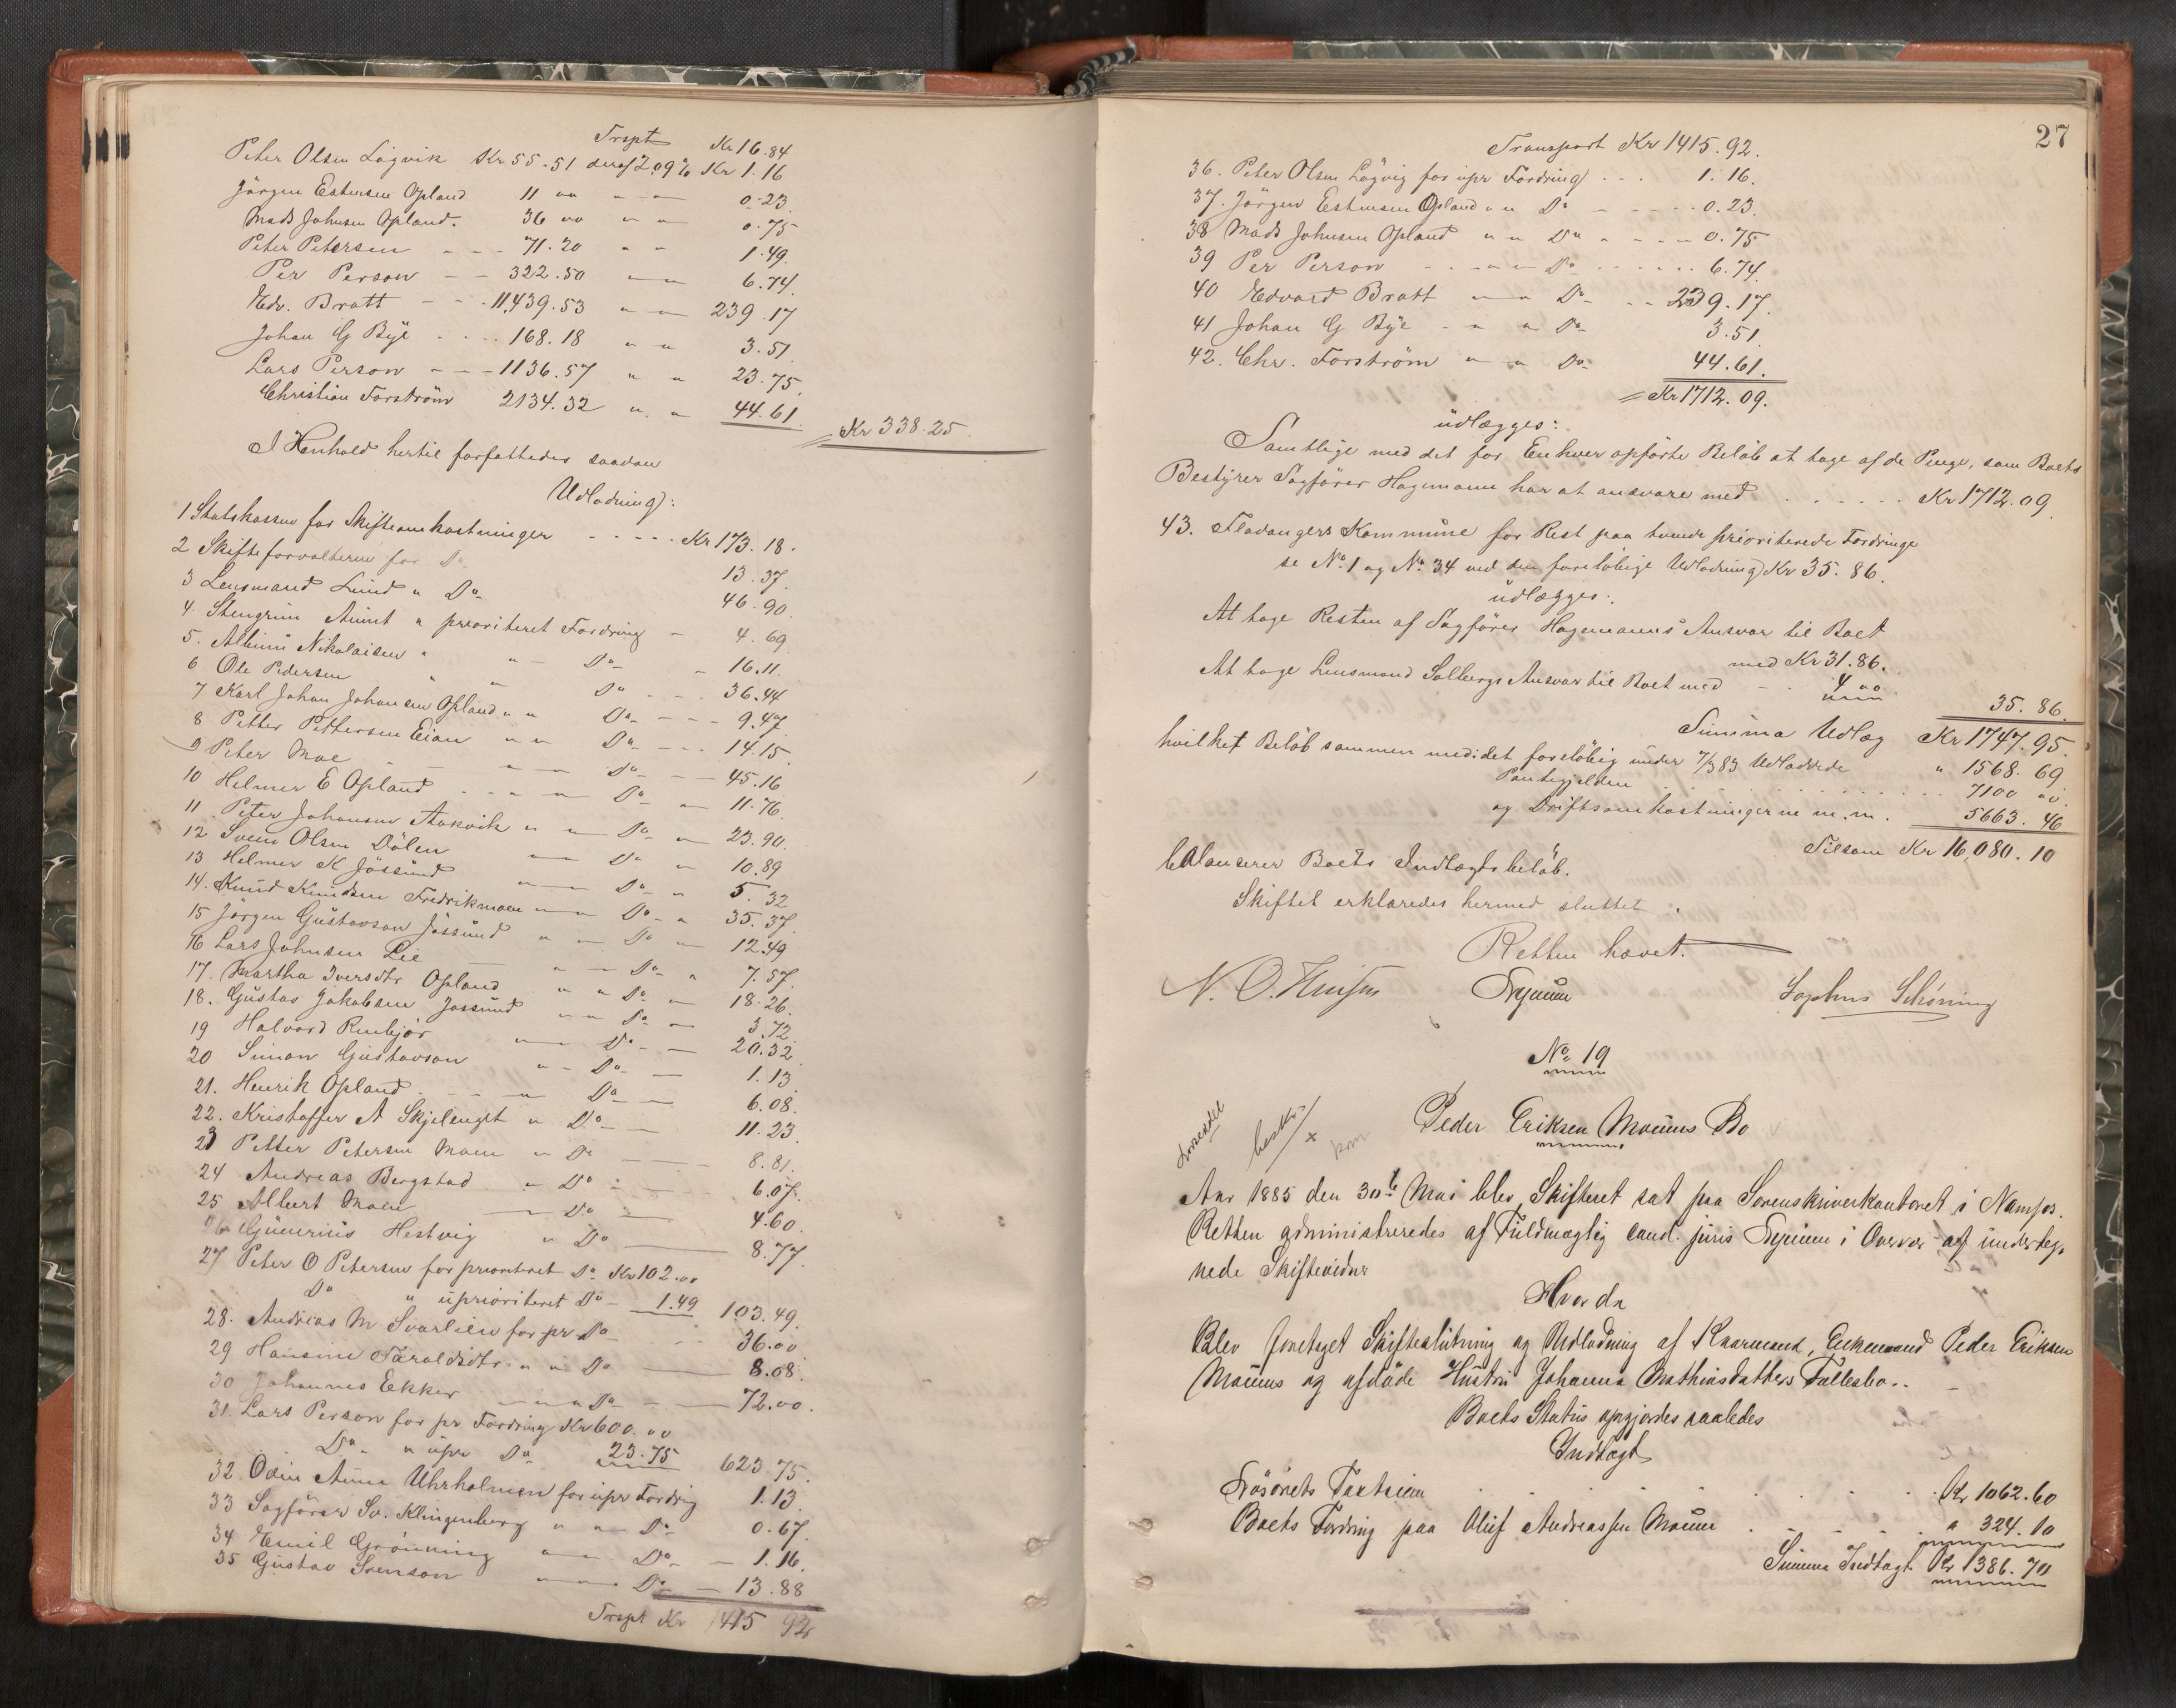 Trspt Kr 16.84
Peter Olsen Lägvik Kr 55.51 deraf 2.09% Kr 1.16
Jörgen Estensen Opland 11 00 " — 0.23.
Mads Johnsen Opland. 36 00 " " 0.75
Peter Petersen - - - 71.20 " " 1.49.
Per Person - - 322.50 — 6.74.
Edv. Bratt - - - 11,439.53 " — 239.17
Johan G Bÿe - - - 168.18 " " 3.51.
Lars Person - - - 1136.57 " " 23.75
Christian Forström 2134.32 " " 44.61.
Kr 338.25.
I Henhold hertil forfattedes saadan
Udlodning:
1 Statskassen for Skifteomkostninger - - - - - Kr 173.18.
2 Skifteforvalteren for Do 13.37.
3 Lensmand Lund " Do 46.90.
4. Stengrim Aunet " prioriteret Fordring - 4.69
5. Albinu Nikolaisen " " — Do - 16.11.
6 Ole Pedersen " " Do - - - 36.44
7 Karl Johan Johansen Opland " " Do - - - 9.47.
8 Petter Pettersen Eian " " Do - - - 14.15
9 Peter Moe - - " — Do - - 45.16
10 Helmer E Opland - - - " — Do - 11.76.
11 Peter Johansen Aakvik " " Do " 23.90.
12 Sven Olsen Dölen — Do " 10.89
13 Helmer K Jössund — Do " 5.32
14. Knud Knudsen Fredrikmoen " — Do " 35.37.
15 Jörgen Gustavson Jössund " — Do — 12.49
16 Lars Johnsen Lie — " — Do " 7.57.
17. Martha Iversdtr Opland " " Do — 18.26.
18. Gustav Jakobsen Jossund " " Do — 3.72
19 Halvard Rinbjör — Do — 20.32
20 Simon Gustavson " - Do — 1.13.
21. Henrik Opland - - - — Do — 6.08.
22. Kristoffer A Skjelenget " Do — 11.23.
23 Petter Petersen Moen " Do — 8.81.
24 Andreas Bergstad " Do — 6.07.
25 Albert Moen — Do — 4.60.
26 Gunerius Hestvig " Do — 8.77.
27 Peter O Petersen for prioriteret Do Kr 102.00
Do " uprioriteret Do - 1.49 103.49.
28. Andrias M Svarlien for pr Do - - 36.00
29 Hansine Taraldsdtr " " Do — 8.08.
30 Johannes Ekker — " Do — 72.00.
31. Lars Person for pr Fordring Kr 600.00
Do " upr Do 23.75 623.75.
32. Odin Anna Uhrholmen for upr Fordrg 1.13.
33 Sagförer Sv. Klingenberg " " Do 0.67.
34 Emil Grönning " — Do — 1.16.
35 Gustav Svenson " — Do — 13.88
Trspt Kr 1415 92
27
Transport Kr 1415.92.
36. Peter Olsen Lägvig for upr Fordring - - - 1.16.
37. Jörgen Estensen Opland " " Do - - - - 0.23.
38 Mads Johnsen Opland " " Do " - - - 0.75
39 Per Person - - - " " Do - - - - - 6.74.
40 Edvard Bratt — " Do - - 239.17.
41 Johan G Bÿe - " " Do 3.51.
42. Chr. Forström " " Do 44.61.
Kr 1712.09.
udlægges:
Samtlige med det for Enhver opförte Belöb at tage af de Penge, som Boets
Bestÿrer Sagförer Hagemann har at ansvare med - - - - - - Kr 1712.09.
43. Fladangers Kommune for Rest paa tvende prioriterede Fordringe
se No 1 og No 34 ved den forelöbige Udlodning Kr 35.86.
udlægges:
At tage Resten af Sagförer Hagemanns Ansvar til Boet
med Kr 31.86.
At tage Lensmand Solbergs Ansvar til Boet med - - 4 00
35.86.
Summa Udlæg Kr 1747.95.
hvilket Belöb sammen med det forelöbig under 7/3 83 Udlodede " 1568.69
Pantegjelden - - - - - - - - 7100 00
og Driftsomkostningerne m.m. 5663.46
Tilsam Kr 16,080.10
balancerer Boets Indtægtsbelöb.
Skiftet erklæredes hermed sluttet.
Retten hævet.
Sophus Schöning
No 19
Peder Eriksen Moüms Bo
Aar 1885 den 30te Mai blev Skifteret sat paa Sorenskriverkontoret i Namsos.
Retten administreredes af Fuldmægtig cand. juris i Overvær af underteg-
nede Skiftevidner
Hvorda
Blev foretaget Skifteslutning og Udlodning af Kaarmand, Enkemand Peder Eriksen
Moüms og afdöde Hustru Johanna Mathiasdatters Fællesbo..
Boets Status opgjordes saaledes
Indtægt
Lösörets Taxtsum - - - - - - - Kr 1062.60
Boets Fordring paa Oluf Andreassen Moüm - - - - " 324.10
Summa Indtægt Kr 1386.70